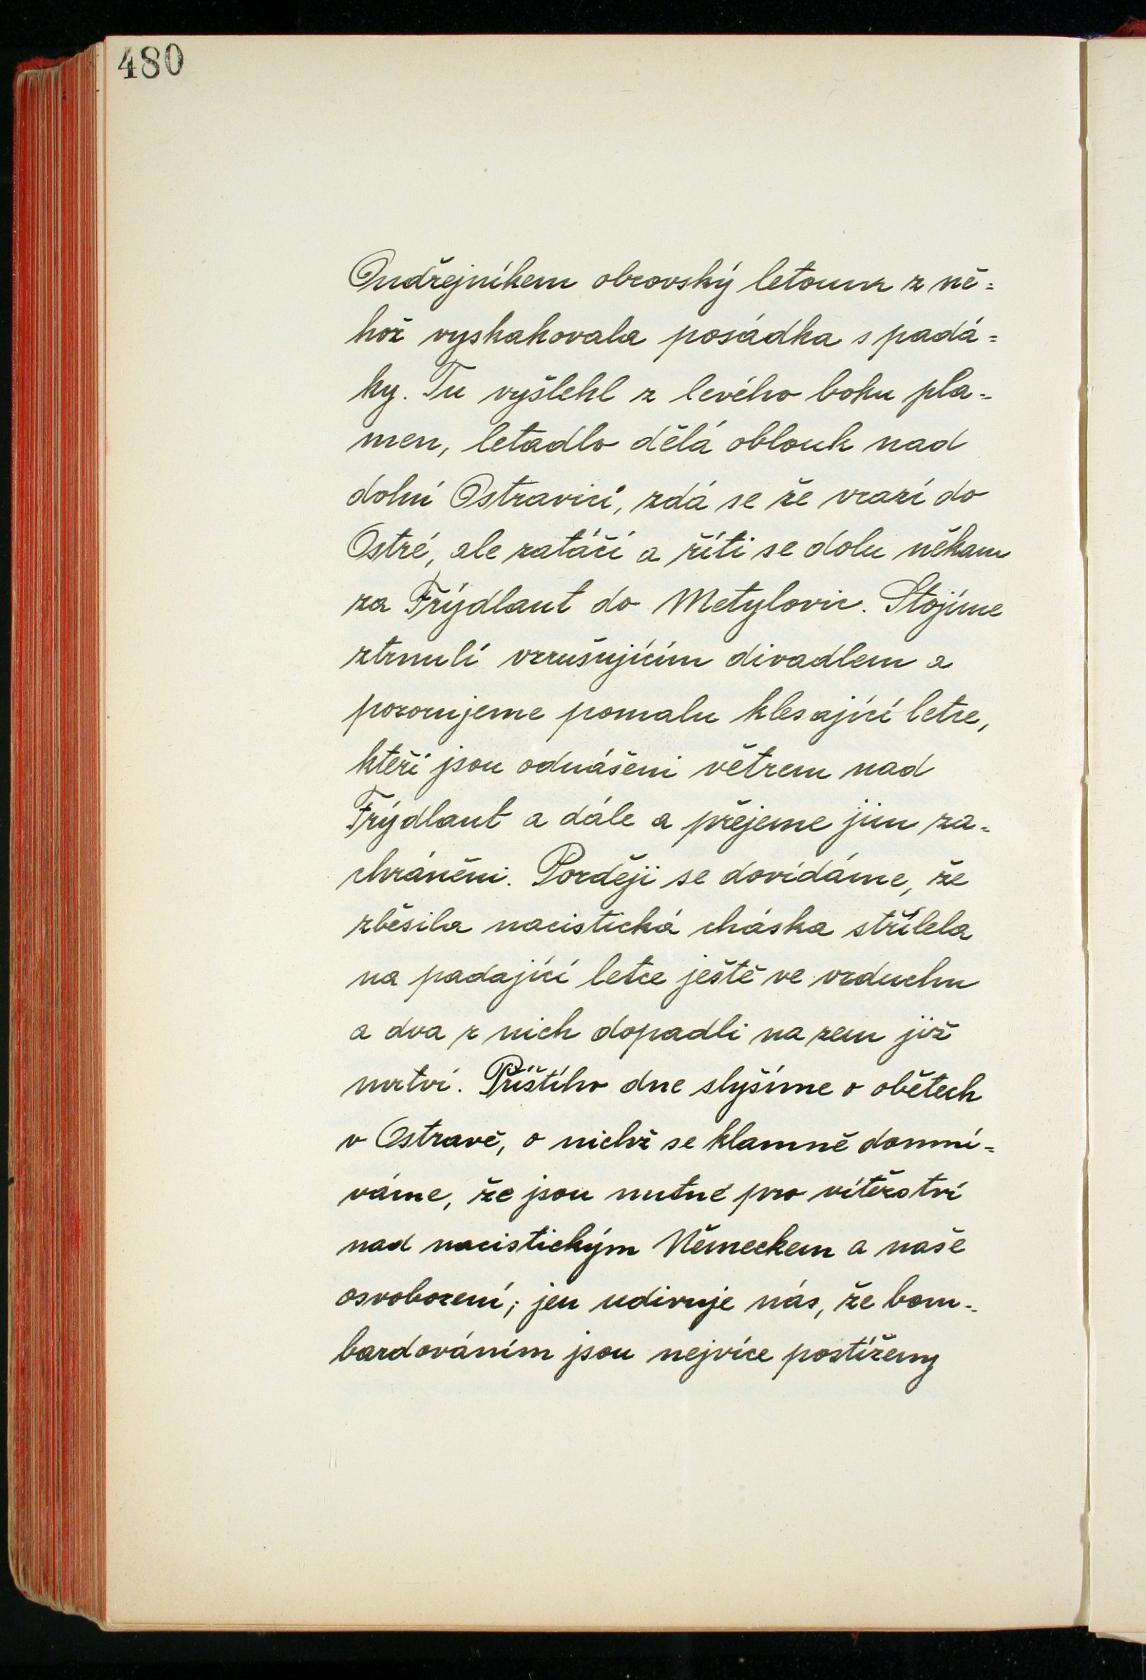 480
Ondřejníkem obrovský letoun z ně=
hož vyskakovala posádka s padá=
ky. Tu vyšlehl z levého boku pla=
men, letadlo dělá oblouk nad
dolní Ostravicí, zdá se že vrazí do
Ostré, ale zatáčí a řítí se dolu někam
za Frýdlant do Metylovic. Stojíme
ztrnulí vzrušujícím divadlem a
pozorujeme pomalu klesající letce,
kteří jsou odnášeni větrem nad
Frýdlant a dále a přejeme jim za=
chránění. Později se dovídáme, že
zběsila nacistická cháska střílela
na padající letce ještě ve vzduchu
a dva z nich dopadli na zem již
mrtví. Příštího dne slyšíme o obětech
v Ostravě, o nichž se klamně domní=
váme, že jsou nutné pro vítězství
nad nacistickým Německem a naše
osvobození; jen udivuje nás, že bom=
bardováním jsou nejvíce postiženy